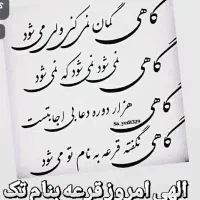 گاهی گمان نمی کنی ولی می شود
گاهی نمی شود نمی شود که نمی شود
گاهی هزار دوره دعا بی اجابت است
گاهی نگفته قرعه به نام تو می شود
الهی امروز قرعه بنام تک